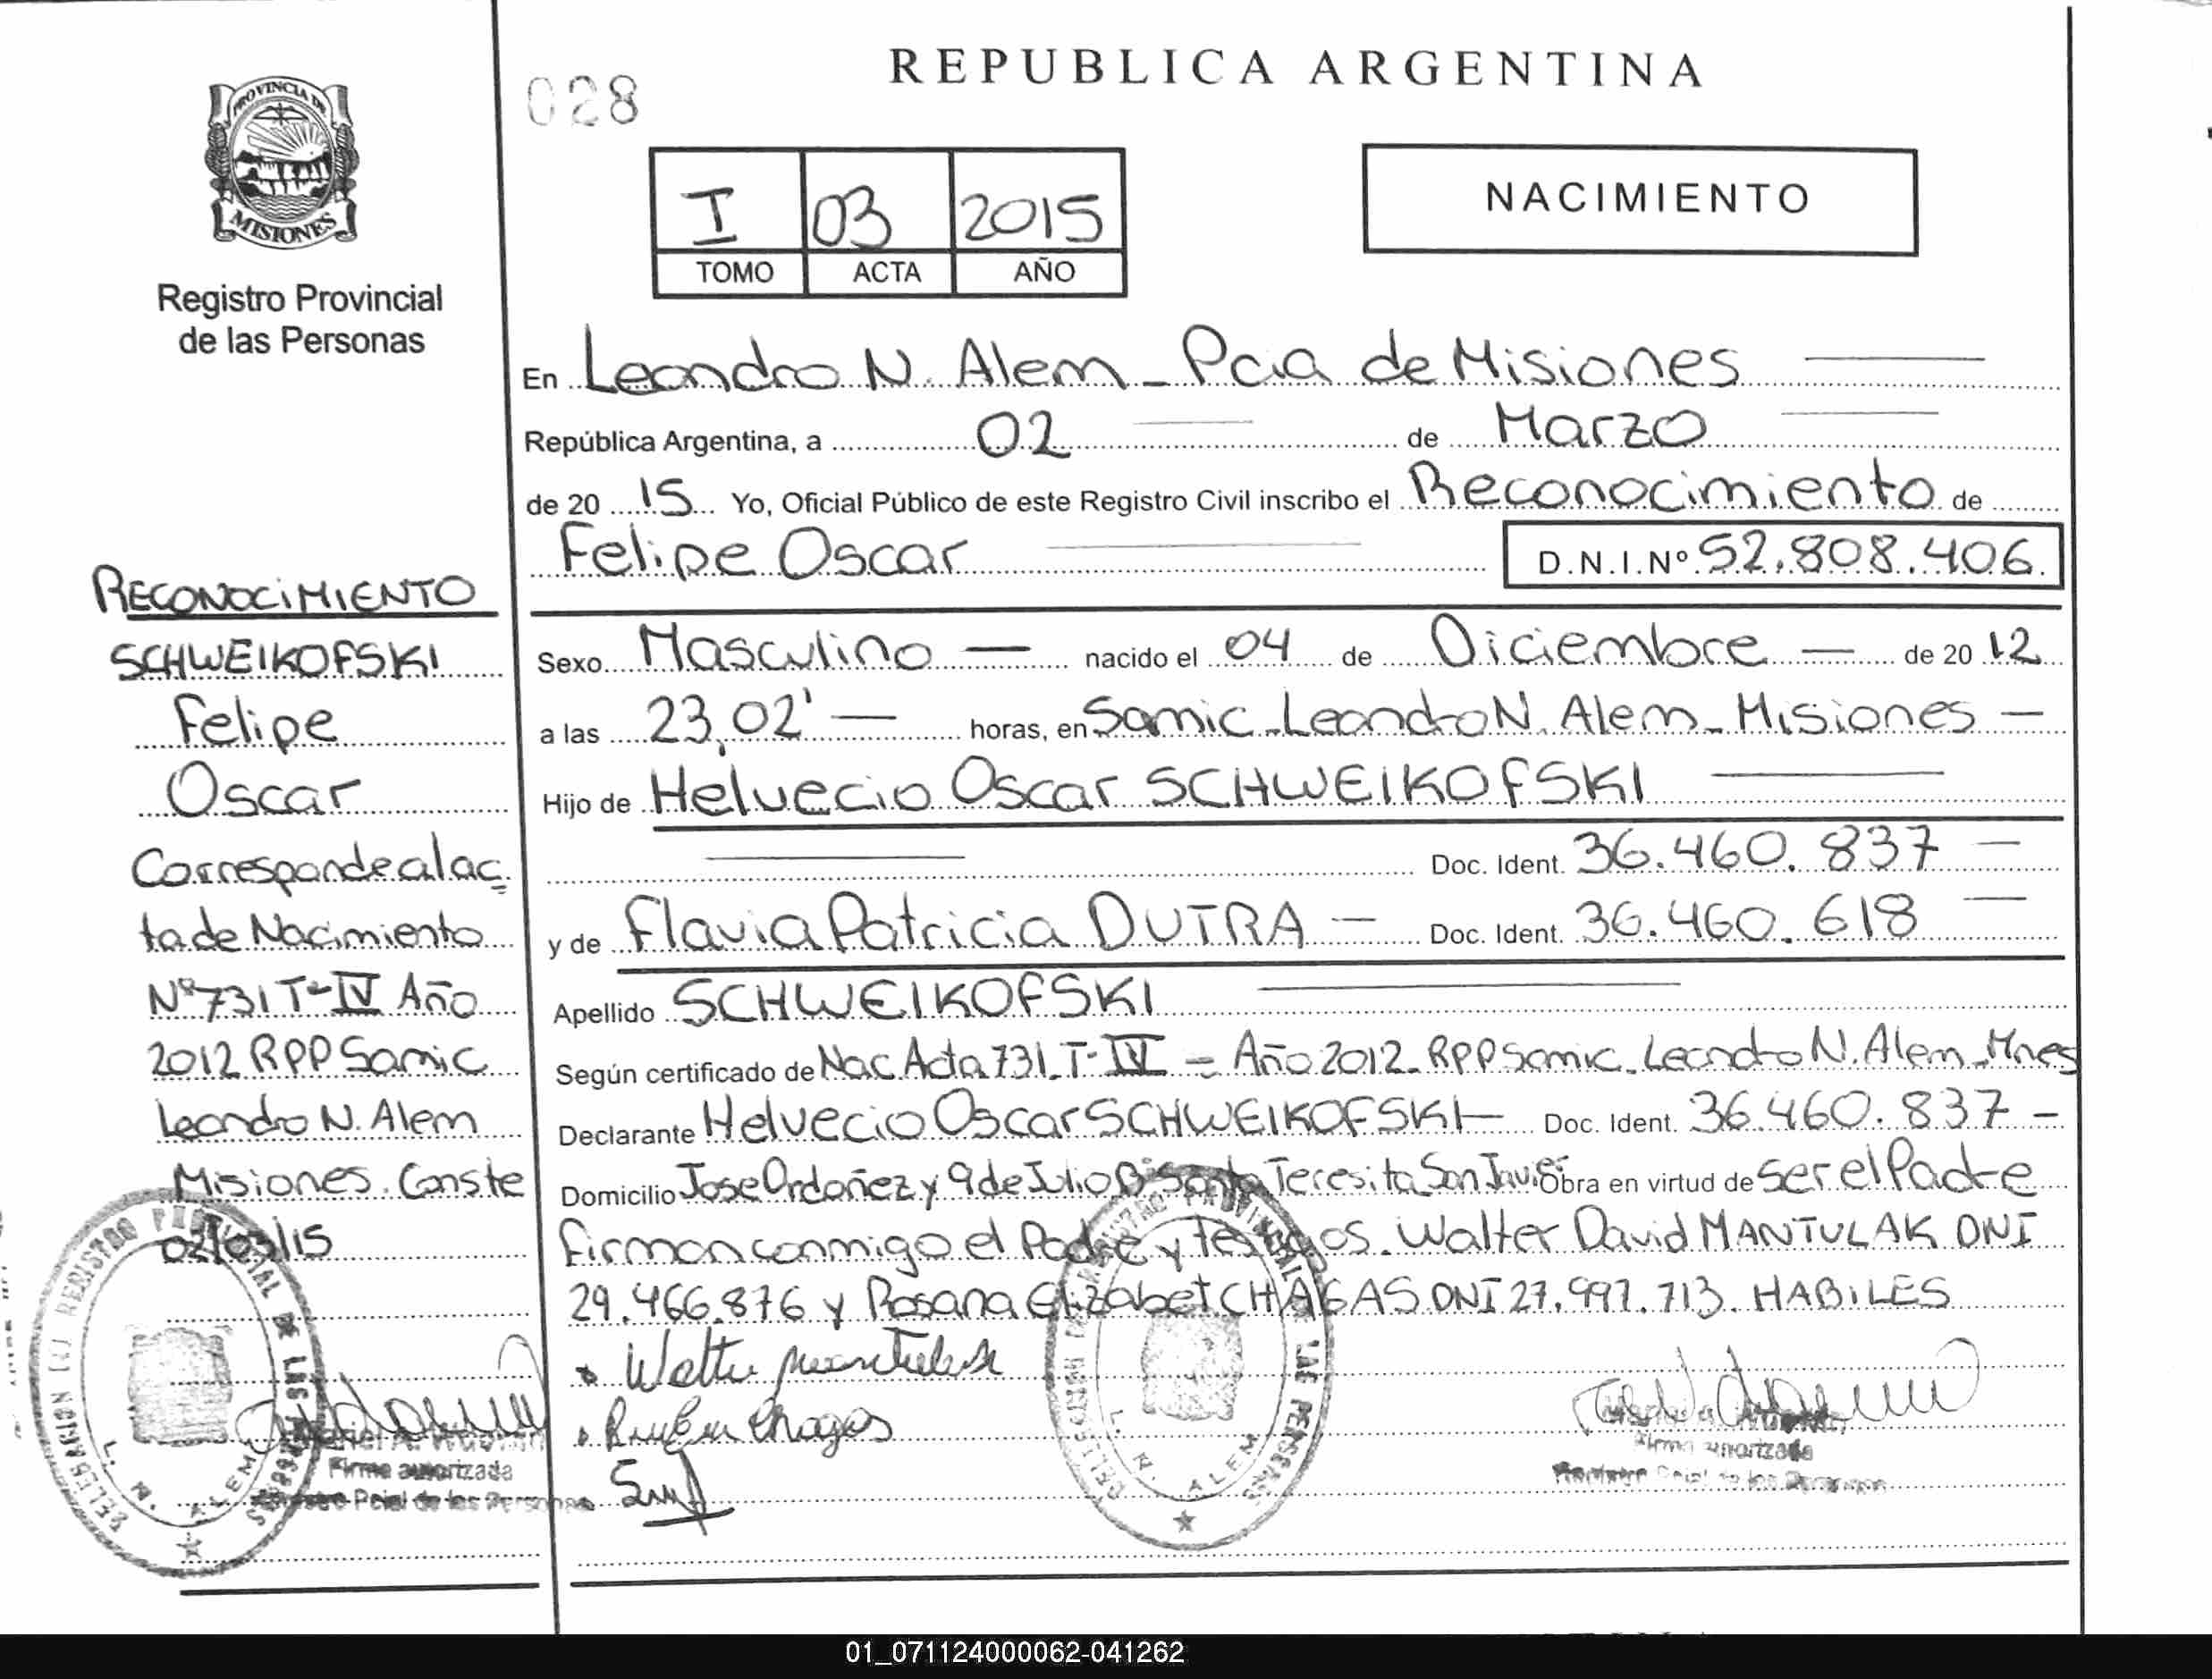 REPUBLICA ARGENTINA
028
PROVINCIA DE
MISIONES
Registro Provincial
de las Personas
I 03 2015
TOMO ACTA AÑO
NACIMIENTO
En Leandro N. Alem - Pcia de Misiones
República Argentina, a 02 de Marzo
de 20 15 Yo, Oficial Público de este Registro Civil inscribo el Reconocimiento de
Felipe Oscar D.N.I.Nº 52.808.406.
Sexo Masculino — nacido el 04 de Diciembre — de 20 12
a las 23,02' — horas, en Samic - Leandro N. Alem - Misiones —
Hijo de Helvecio Oscar SCHWEIKOFSKI
Doc. Ident. 36.460.837 —
y de Flavia Patricia DUTRA — Doc. Ident. 36.460.618 —
Apellido SCHWEIKOFSKI
Según certificado de Nac Acta 731 T-IV - Año 2012 - RPP Samic - Leandro N. Alem - Mnes
Declarante Helvecio Oscar SCHWEIKOFSKI — Doc. Ident. 36.460.837 —
Domicilio Jose Ordoñez y 9 de Julio Bº Santa Teresita San Javier Obra en virtud de ser el Padre
Firman conmigo el Padre y testigos. Walter David MANTULAK DNI
29.466.876 y Rosana Elizabet CHAGAS DNI 27.997.713. HABILES
RECONOCIMIENTO
SCHWEIKOFSKI
Felipe
Oscar
Corresponde al ac
ta de Nacimiento
Nº 731 T-IV Año
2012 RPP Samic
Leandro N. Alem
Misiones. Conste
02/03/15
DELEGACION DEL REGISTRO PROVINCIAL DE LAS PERSONAS
L. N. ALEM
Firma autorizada
Registro Pcial de las Personas
Walter Mantulak
Chagas
DELEGACION DEL REGISTRO PROVINCIAL DE LAS PERSONAS
L. N. ALEM
Firma autorizada
Registro Pcial de las Personas
01_071124000062-041262